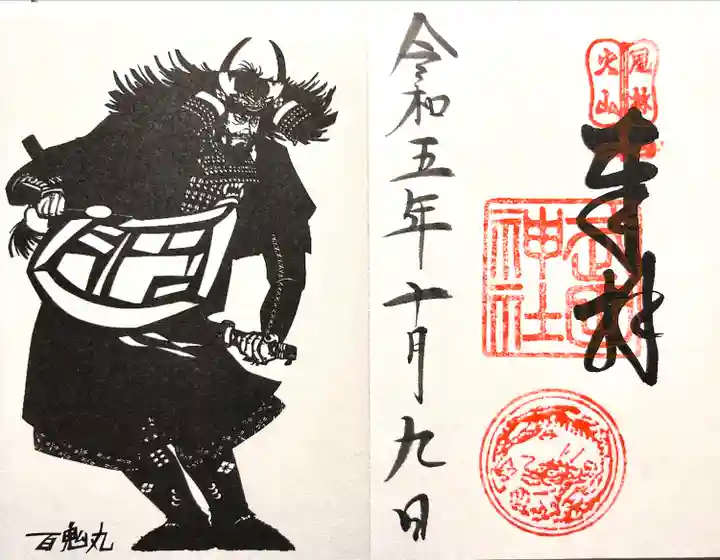 風林
火山
奉拝
武田
神社
令和五年十月九日
百鬼丸